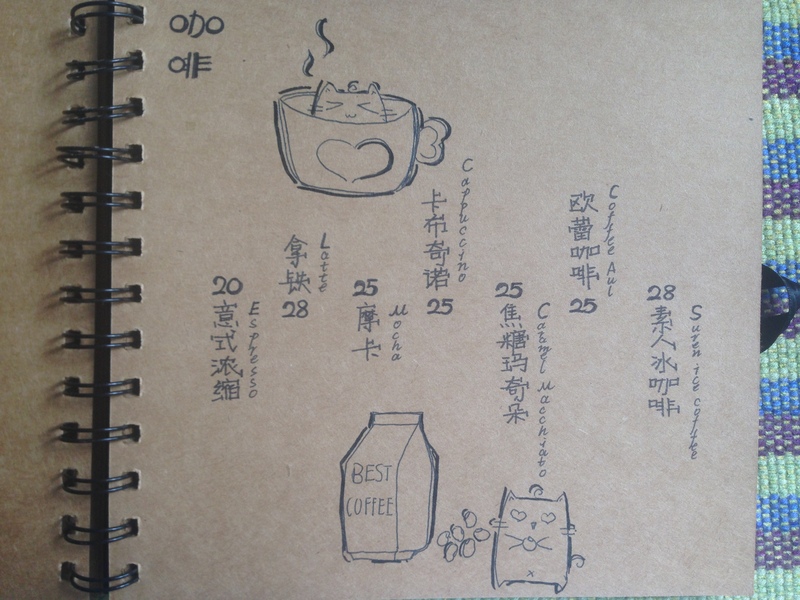 咖啡
20
意式浓缩
Espresso
拿铁
Latte
28
25
摩卡
Mocha
卡布奇诺
Cappuccino
25
25
焦糖玛奇朵
Caramel Macchiato
欧蕾咖啡
Coffee Aul
25
28
素人冰咖啡
Suren ice coffee
BEST
COFFEE